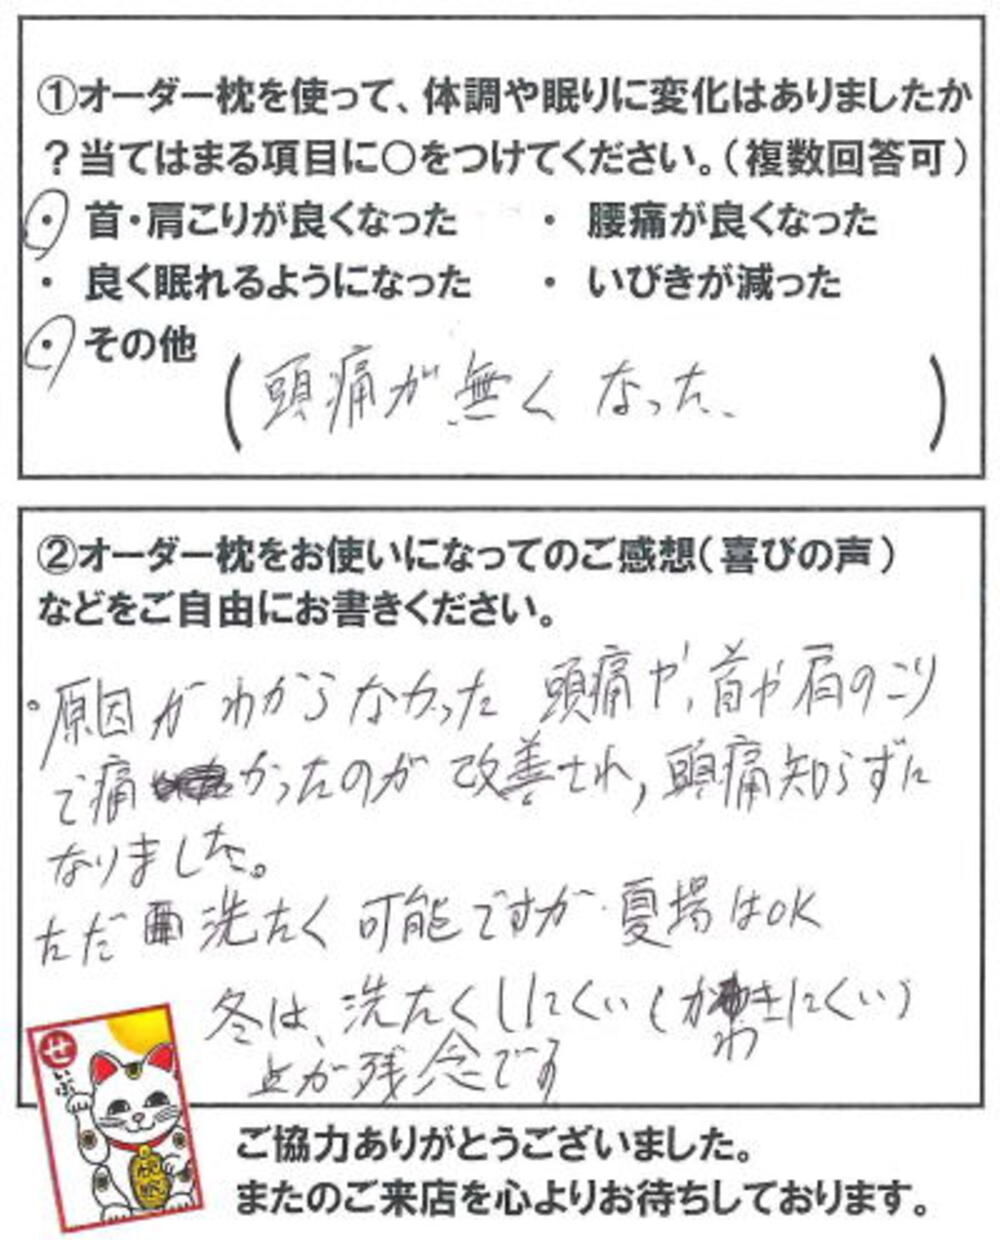 ①オーダー枕を使って、体調や眠りに変化はありましたか
？当てはまる項目に○をつけてください。（複数回答可）
・ 首・肩こりが良くなった ・ 腰痛が良くなった
・ 良く眠れるようになった ・ いびきが減った
・ その他
（頭痛が無くなった、）
②オーダー枕をお使いになってのご感想（喜びの声）
などをご自由にお書きください。
。原因がわからなかった 頭痛や、首や肩のこり
で痛かったのが改善され、頭痛知らずに
なりました。
ただ 洗たく可能ですが、夏場はOK
冬は、洗たくしにくい（かわきにくい）
点が残念です
せ
いぶ
ご協力ありがとうございました。
またのご来店を心よりお待ちしております。